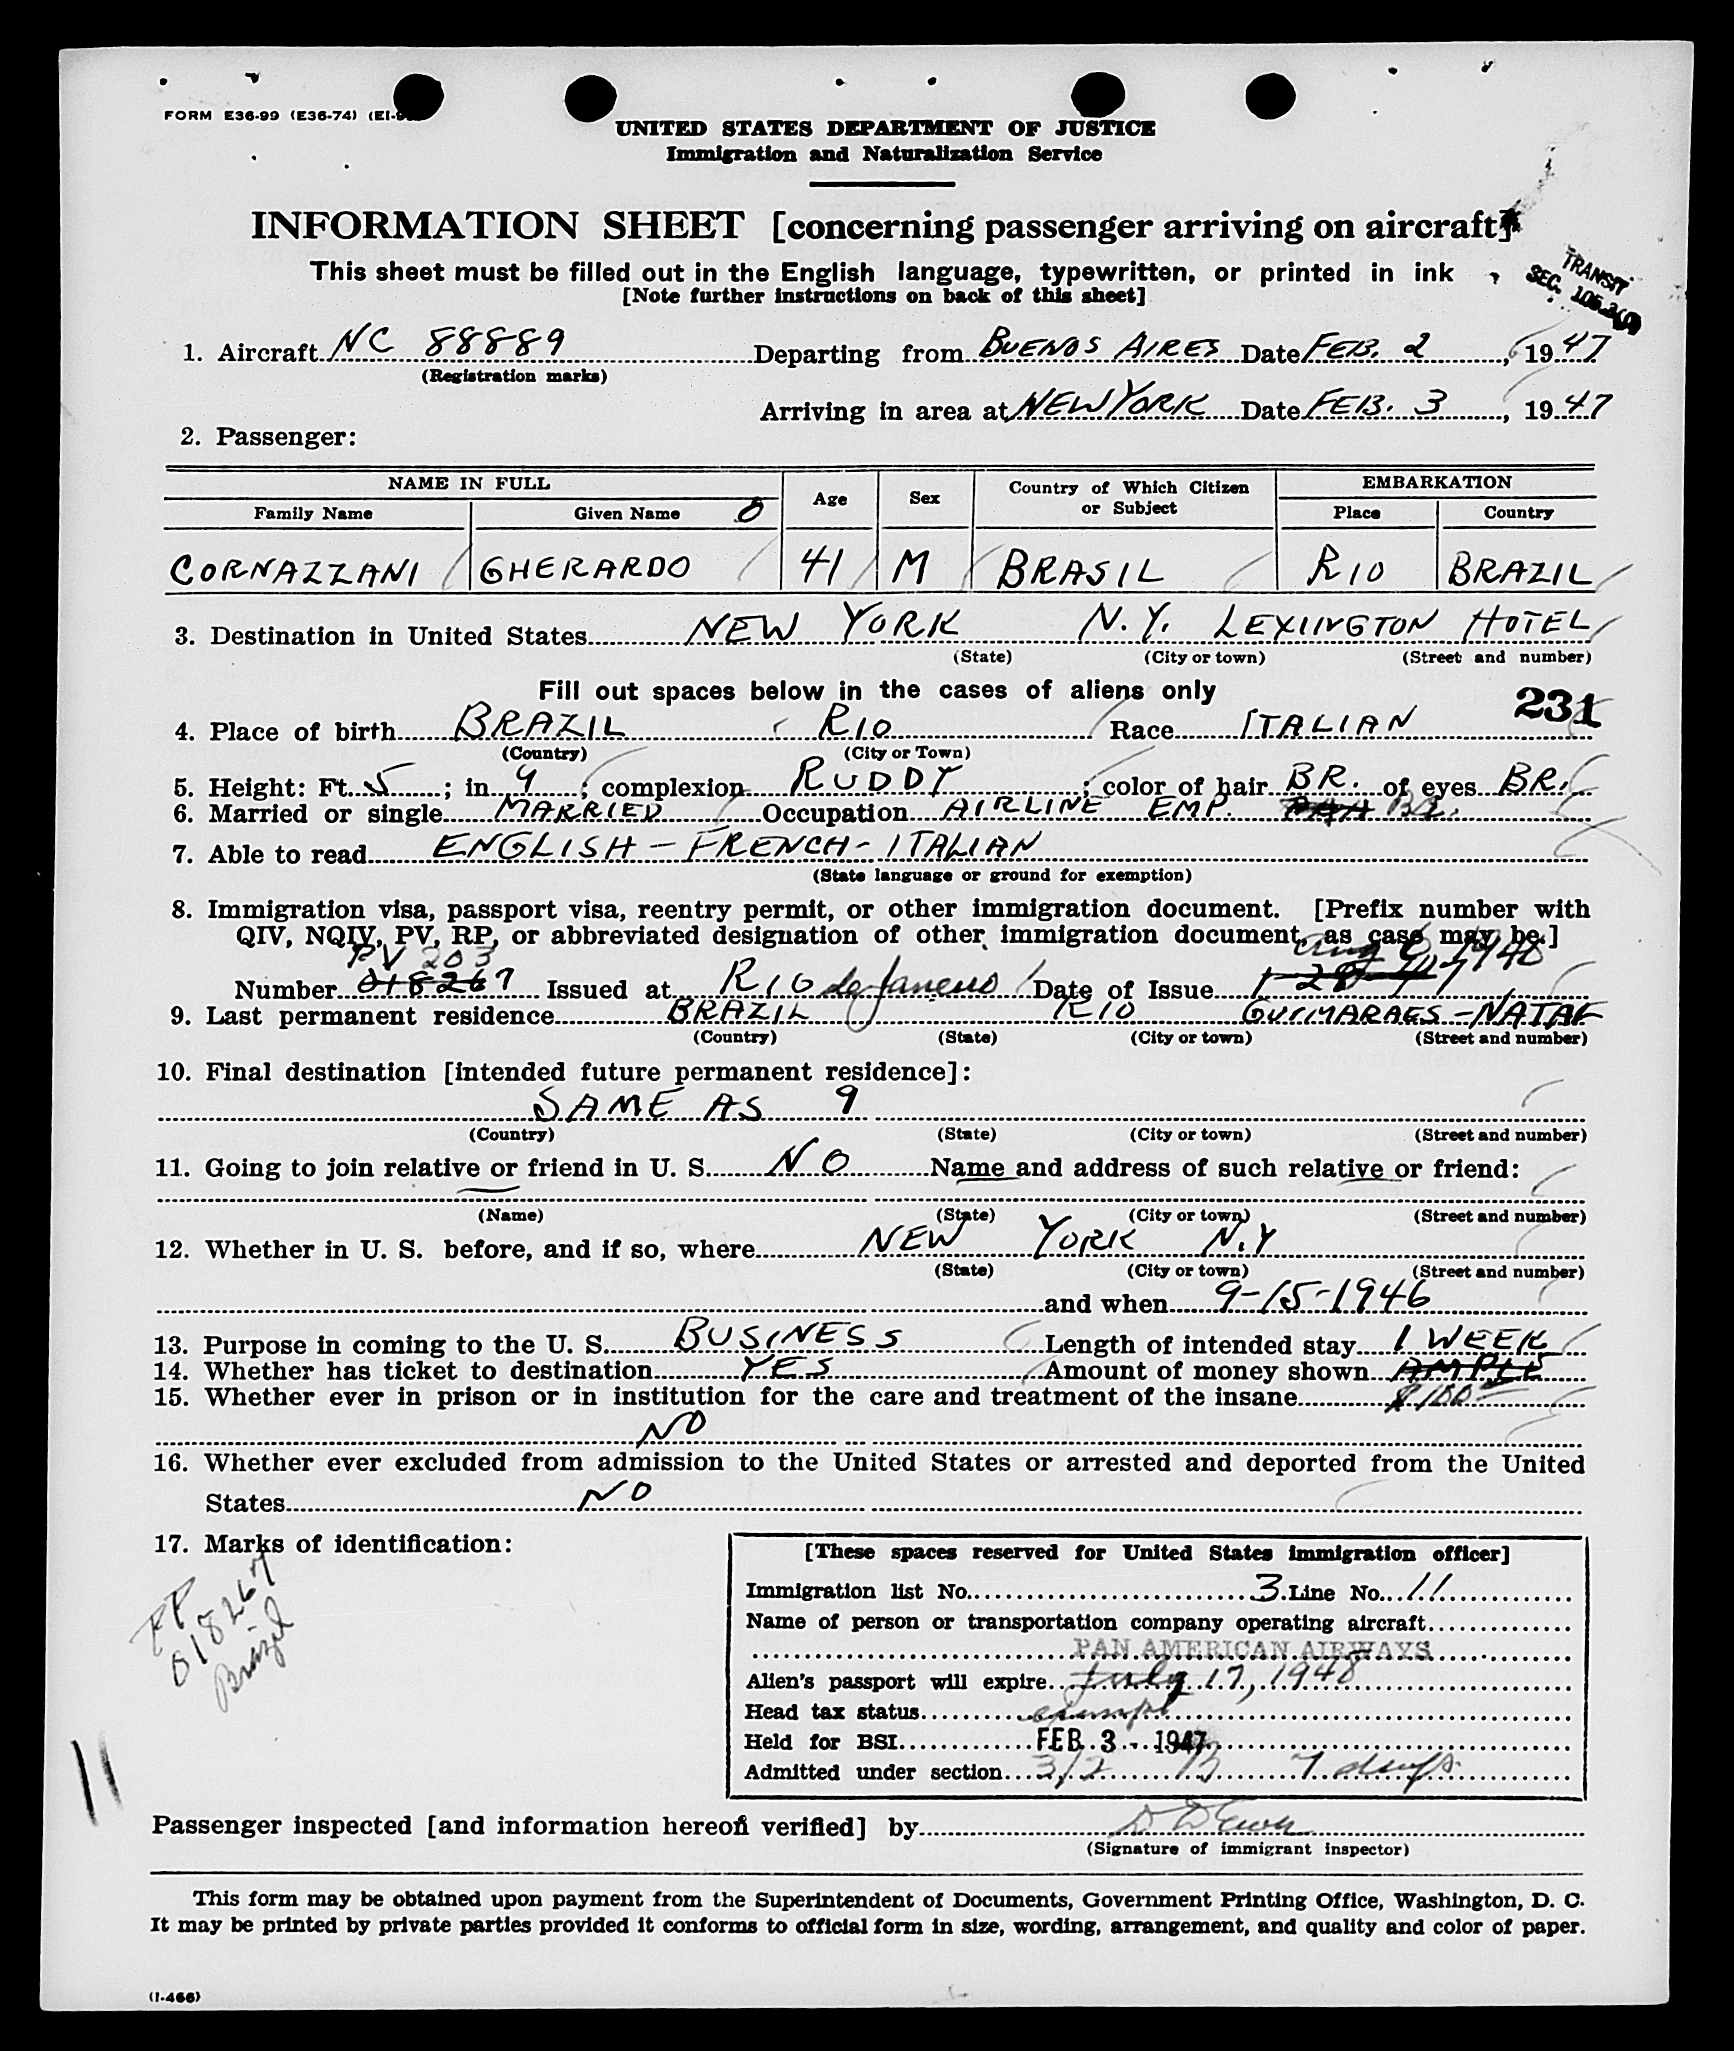 FORM E36-99 (E36-74) (EI-9
UNITED STATES DEPARTMENT OF JUSTICE
Immigration and Naturalization Service
INFORMATION SHEET [concerning passenger arriving on aircraft]
This sheet must be filled out in the English language, typewritten, or printed in ink
[Note further instructions on back of this sheet]
TRANSIT
SEC. 105.3
1. Aircraft NC 88889 Departing from BUENOS AIRES Date FEB. 2, 1947
(Registration marks)
Arriving in area at NEW YORK Date FEB. 3, 1947
2. Passenger:
NAME IN FULL Age Sex Country of Which Citizen or Subject EMBARKATION
Family Name Given Name Place Country
CORNAZZANI GHERARDO 41 M BRASIL RIO BRAZIL
3. Destination in United States NEW YORK N.Y. LEXINGTON HOTEL
(State) (City or town) (Street and number)
Fill out spaces below in the cases of aliens only
231
4. Place of birth BRAZIL RIO Race ITALIAN
(Country) (City or Town)
5. Height: Ft. 5; in. 9; complexion RUDDY; color of hair BR. of eyes BR.
6. Married or single MARRIED Occupation AIRLINE EMP. PAA BR.
7. Able to read ENGLISH - FRENCH - ITALIAN
(State language or ground for exemption)
8. Immigration visa, passport visa, reentry permit, or other immigration document. [Prefix number with
QIV, NQIV, PV, RP, or abbreviated designation of other immigration document, as case may be.]
PV 203 Aug 6 1946
Number 018267 Issued at RIO de Janeiro Date of Issue 1-28-47
9. Last permanent residence BRAZIL RIO GUIMARAES - NATAL
(Country) (State) (City or town) (Street and number)
10. Final destination [intended future permanent residence]:
SAME AS 9
(Country) (State) (City or town) (Street and number)
11. Going to join relative or friend in U. S. NO Name and address of such relative or friend:
(Name) (State) (City or town) (Street and number)
12. Whether in U. S. before, and if so, where NEW YORK N.Y
(State) (City or town) (Street and number)
and when 9-15-1946
13. Purpose in coming to the U. S. BUSINESS Length of intended stay 1 WEEK
14. Whether has ticket to destination YES Amount of money shown AMPLE
15. Whether ever in prison or in institution for the care and treatment of the insane $100
NO
16. Whether ever excluded from admission to the United States or arrested and deported from the United
States NO
17. Marks of identification:
PP
018267
Brazil
11
[These spaces reserved for United States immigration officer]
Immigration list No. 3 Line No. 11
Name of person or transportation company operating aircraft
PAN AMERICAN AIRWAYS
Alien's passport will expire July 17, 1948
Head tax status exempt
Held for BSI FEB 3 - 1947
Admitted under section 3/2 B 7 days
Passenger inspected [and information hereon verified] by
(Signature of immigrant inspector)
This form may be obtained upon payment from the Superintendent of Documents, Government Printing Office, Washington, D. C.
It may be printed by private parties provided it conforms to official form in size, wording, arrangement, and quality and color of paper.
(I-466)